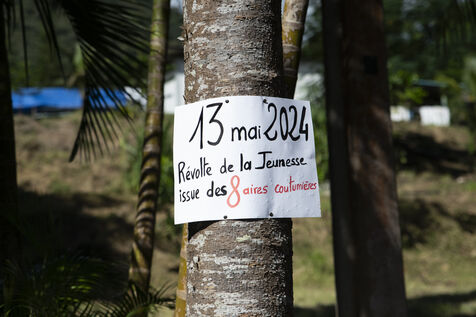 13 mai 2024
Révolte de la Jeunesse
issue des 8 aires coutumières